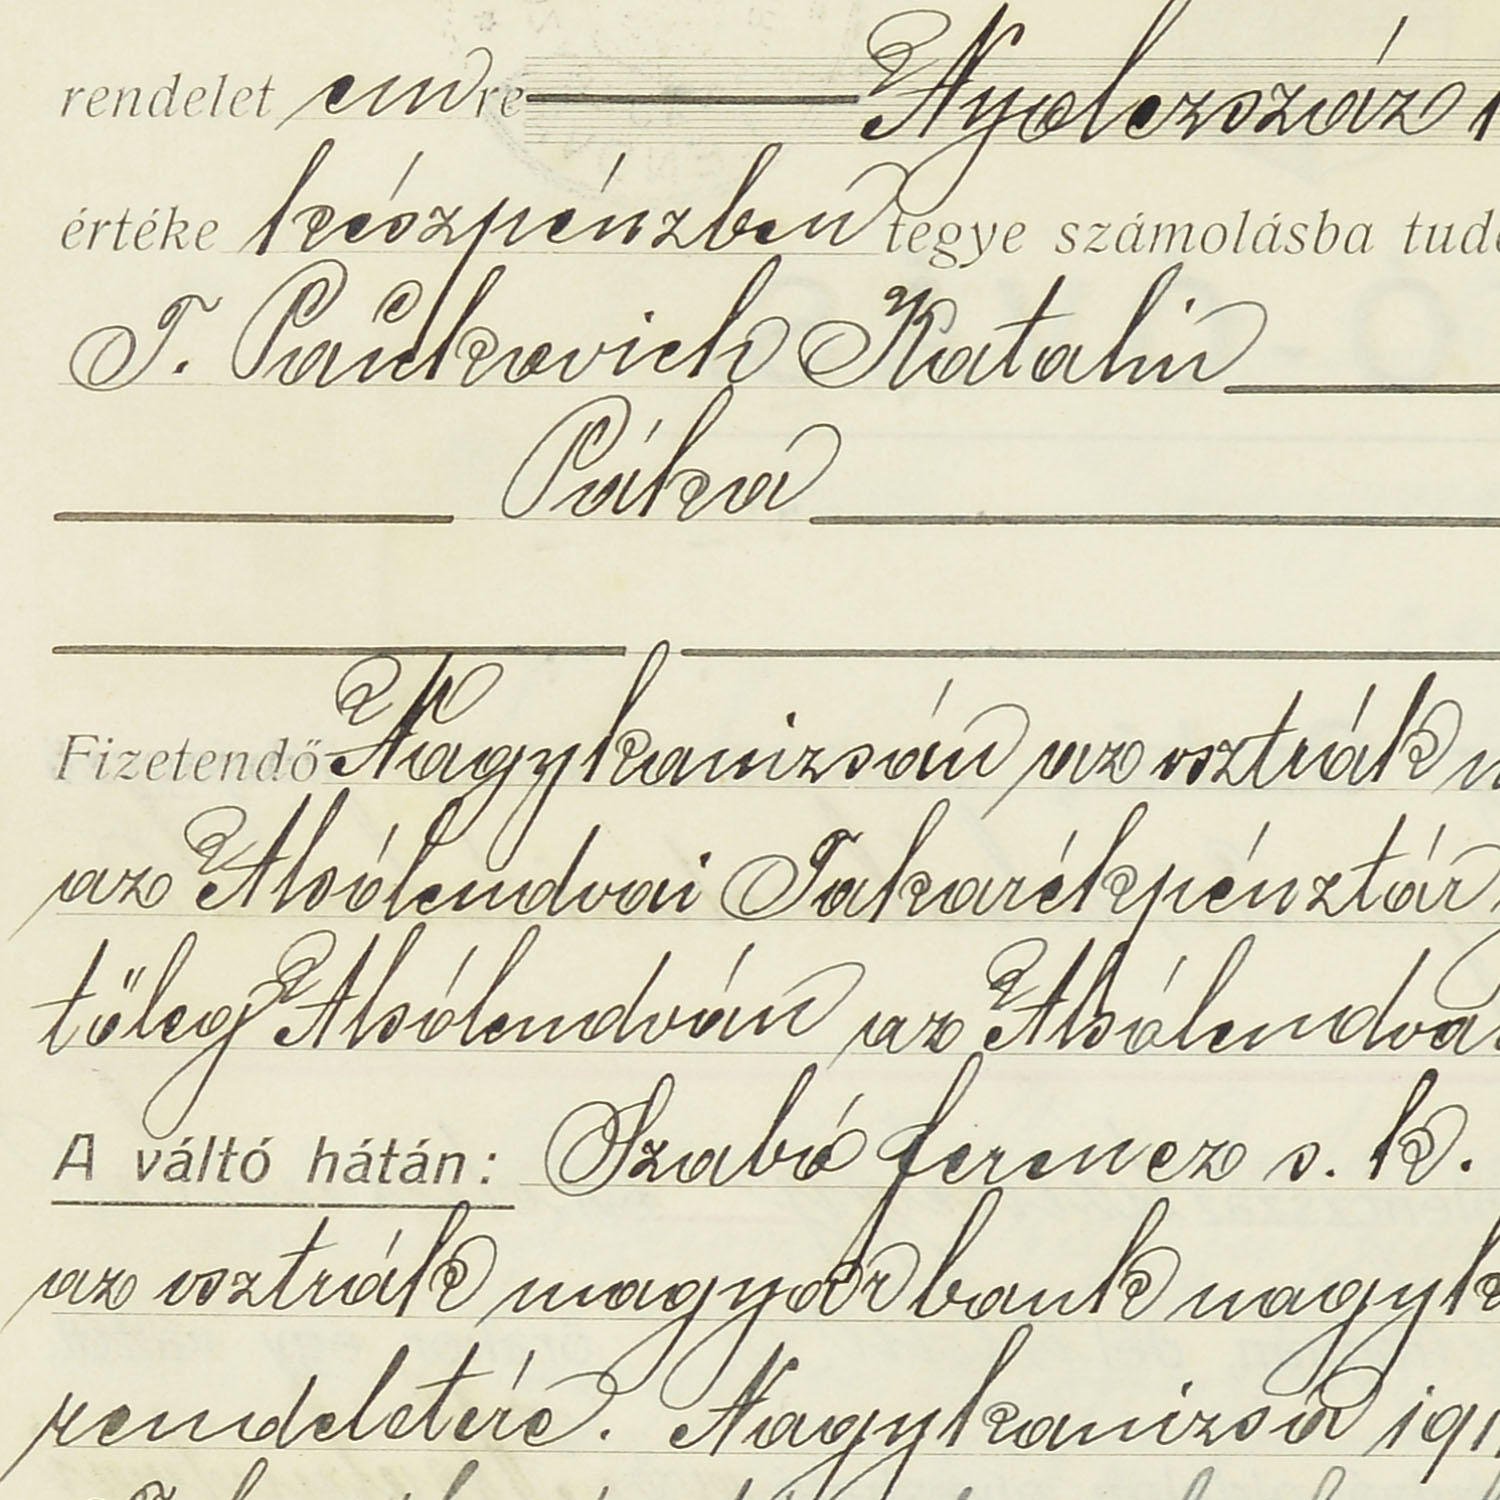 rendelet em re Nyolczszáz
értéke készpénzben tegye számolásba
T. Pačkovich Katalin
Páka
Fizetendő Nagykanizsán az osztrák
az Alsólendvai Takarékpénztár
tőleg Alsólendván az Alsólendva
A váltó hátán: Szabó ferencz s. k.
az osztrák magyar bank nagyk
rendeletére. Nagykanizsa 191